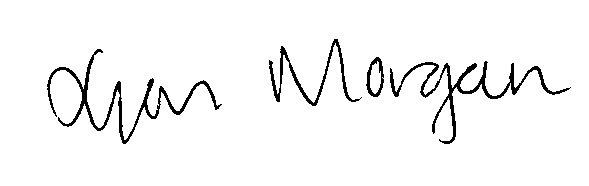 Lyn Morgan